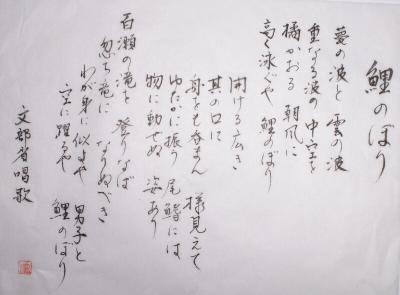 鯉のぼり
甍の波と 雲の波
重なる波の 中空を
橘かおる 朝風に
高く泳ぐや 鯉のぼり
開ける広き
其の口に
舟をも呑まん 様見えて
ゆたかに振う 尾鰭には
物に動ぜぬ 姿あり
百瀬の滝を 登りなば
忽ち竜に なりぬべき
わが身に似よや 男子と
空に躍るや 鯉のぼり
文部省唱歌